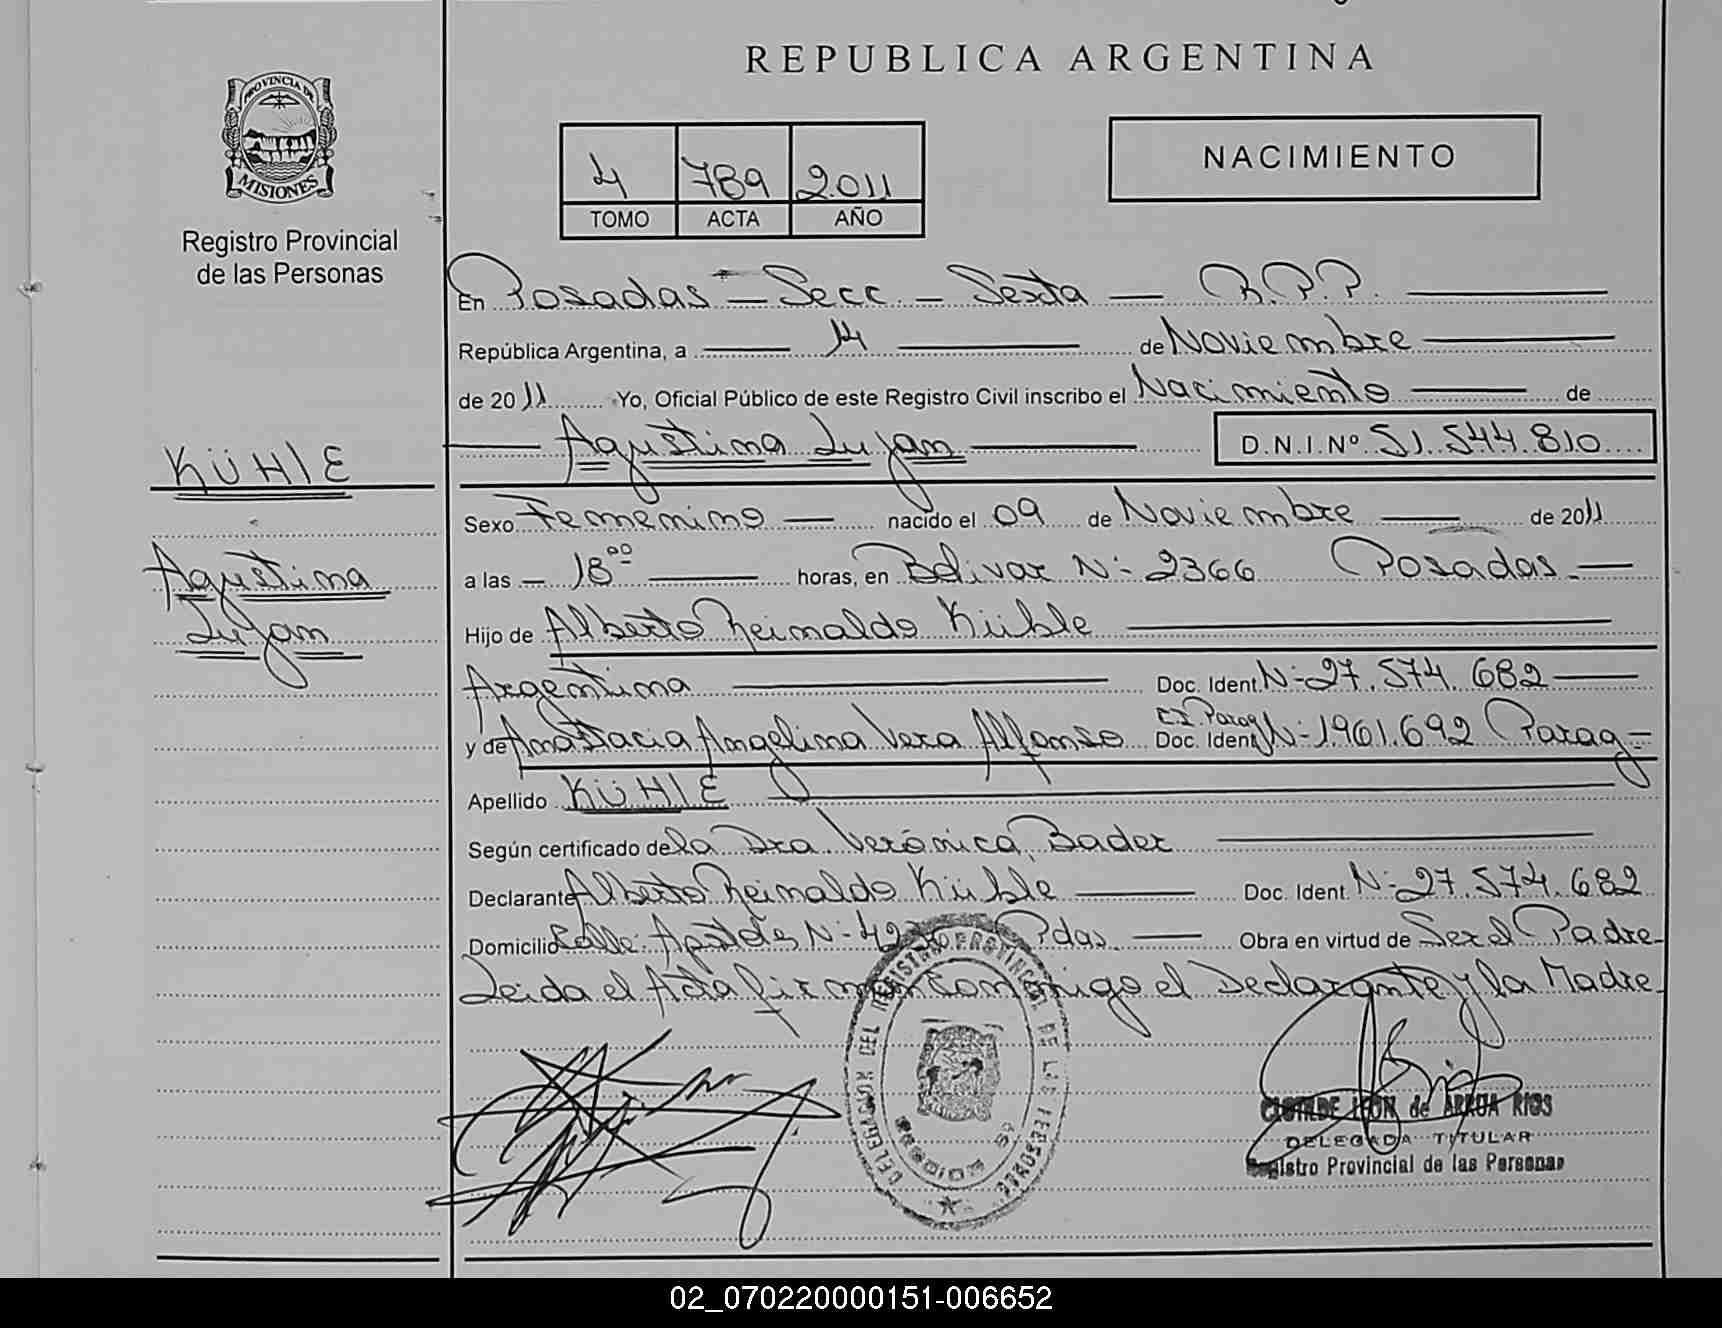 REPUBLICA ARGENTINA
PROVINCIA DE
MISIONES
Registro Provincial
de las Personas
4 789 2.011
TOMO ACTA AÑO
NACIMIENTO
En Posadas - Secc - Sexta - R.P.P.
República Argentina, a 14 de Noviembre
de 2011 Yo, Oficial Público de este Registro Civil inscribo el Nacimiento de
Agustina Lujan D.N.I.Nº 51.544.810
KÜHlE
Agustina
Lujan
Sexo Femenino nacido el 09 de Noviembre de 2011
a las 18 00 horas, en Bolivar Nº 2366 Posadas
Hijo de Alberto Reinaldo Kühle
Argentina Doc. Ident. Nº 27.574.682
y de Anastacia Angelina Vera Alfonso C.I. Parag Doc. Ident. Nº 1.961.692 Parag
Apellido KÜHlE
Según certificado de la Dra. Verónica Bader
Declarante Alberto Reinaldo Kühle Doc. Ident. Nº 27.574.682
Domicilio Calle: Nº Pdas. Obra en virtud de Ser el Padre
Leida el Acta firman conmigo el Declarante y la Madre
DELEGACION DEL REGISTRO PROVINCIAL DE LAS PERSONAS
CLOTILDE LEON de ARRUA RIOS
DELEGADA TITULAR
Registro Provincial de las Personas
02_070220000151-006652